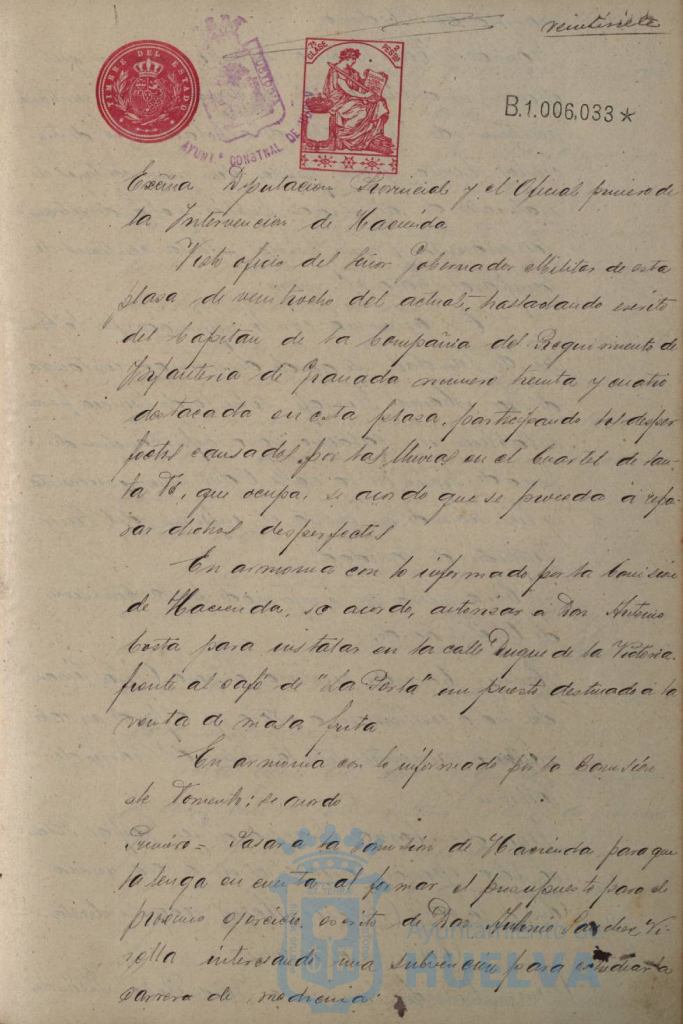 veintisiete
TIMBRE DEL ESTADO
AYUNTº CONSTNAL DE
7ª CLASE
2 PESETAS
B.1.006,033*
Excma Diputacion Provincial y el Oficial primero de
la Intervencion de Hacienda
Visto oficio del Señor Gobernador Militar de esta
plaza de veintiocho del actual, trasladando escrito
del Capitan de la Compañia del Regimiento de
Infanteria de Granada numero treinta y cuatro
destacada en esta plaza, participando los desper
fectos causados por las lluvias en el Cuartel de San
ta Fé, que ocupa, se acordo que se proceda á repa
rar dichos desperfectos
En armonia con lo informado por la Comisión
de Hacienda, se acordo, autorizar á Don Antonio
Costa para instalar en la calle Duque de la Victoria,
frente al café de "La Perla" un puesto destinado á la
venta de masa frita
En armonia con lo informado por la Comisión
de Fomento; se acordo
Primero = Pasar á la Comisión de Hacienda para que
la tenga en cuenta al formar el presupuesto para el
proximo ejercicio, escrito de Don Antonio Sanchez
interesando una subvencion para estudiar la
Carrera de medicina:
Ayuntamiento de
HUELVA